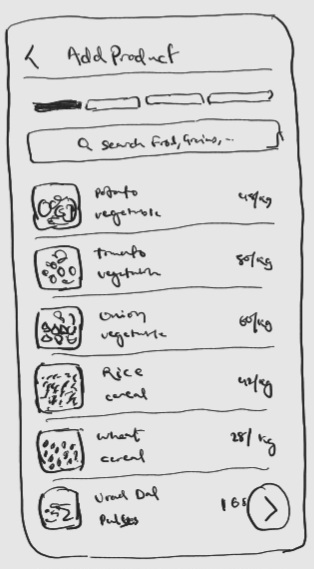 Add Product
Search Food, Grains,...
Potato
vegetable 40/kg
Tomato
vegetable 80/kg
Onion
vegetable 60/kg
Rice
cereal 42/kg
wheat
cereal 28/kg
Urad Dal
Pulses 168